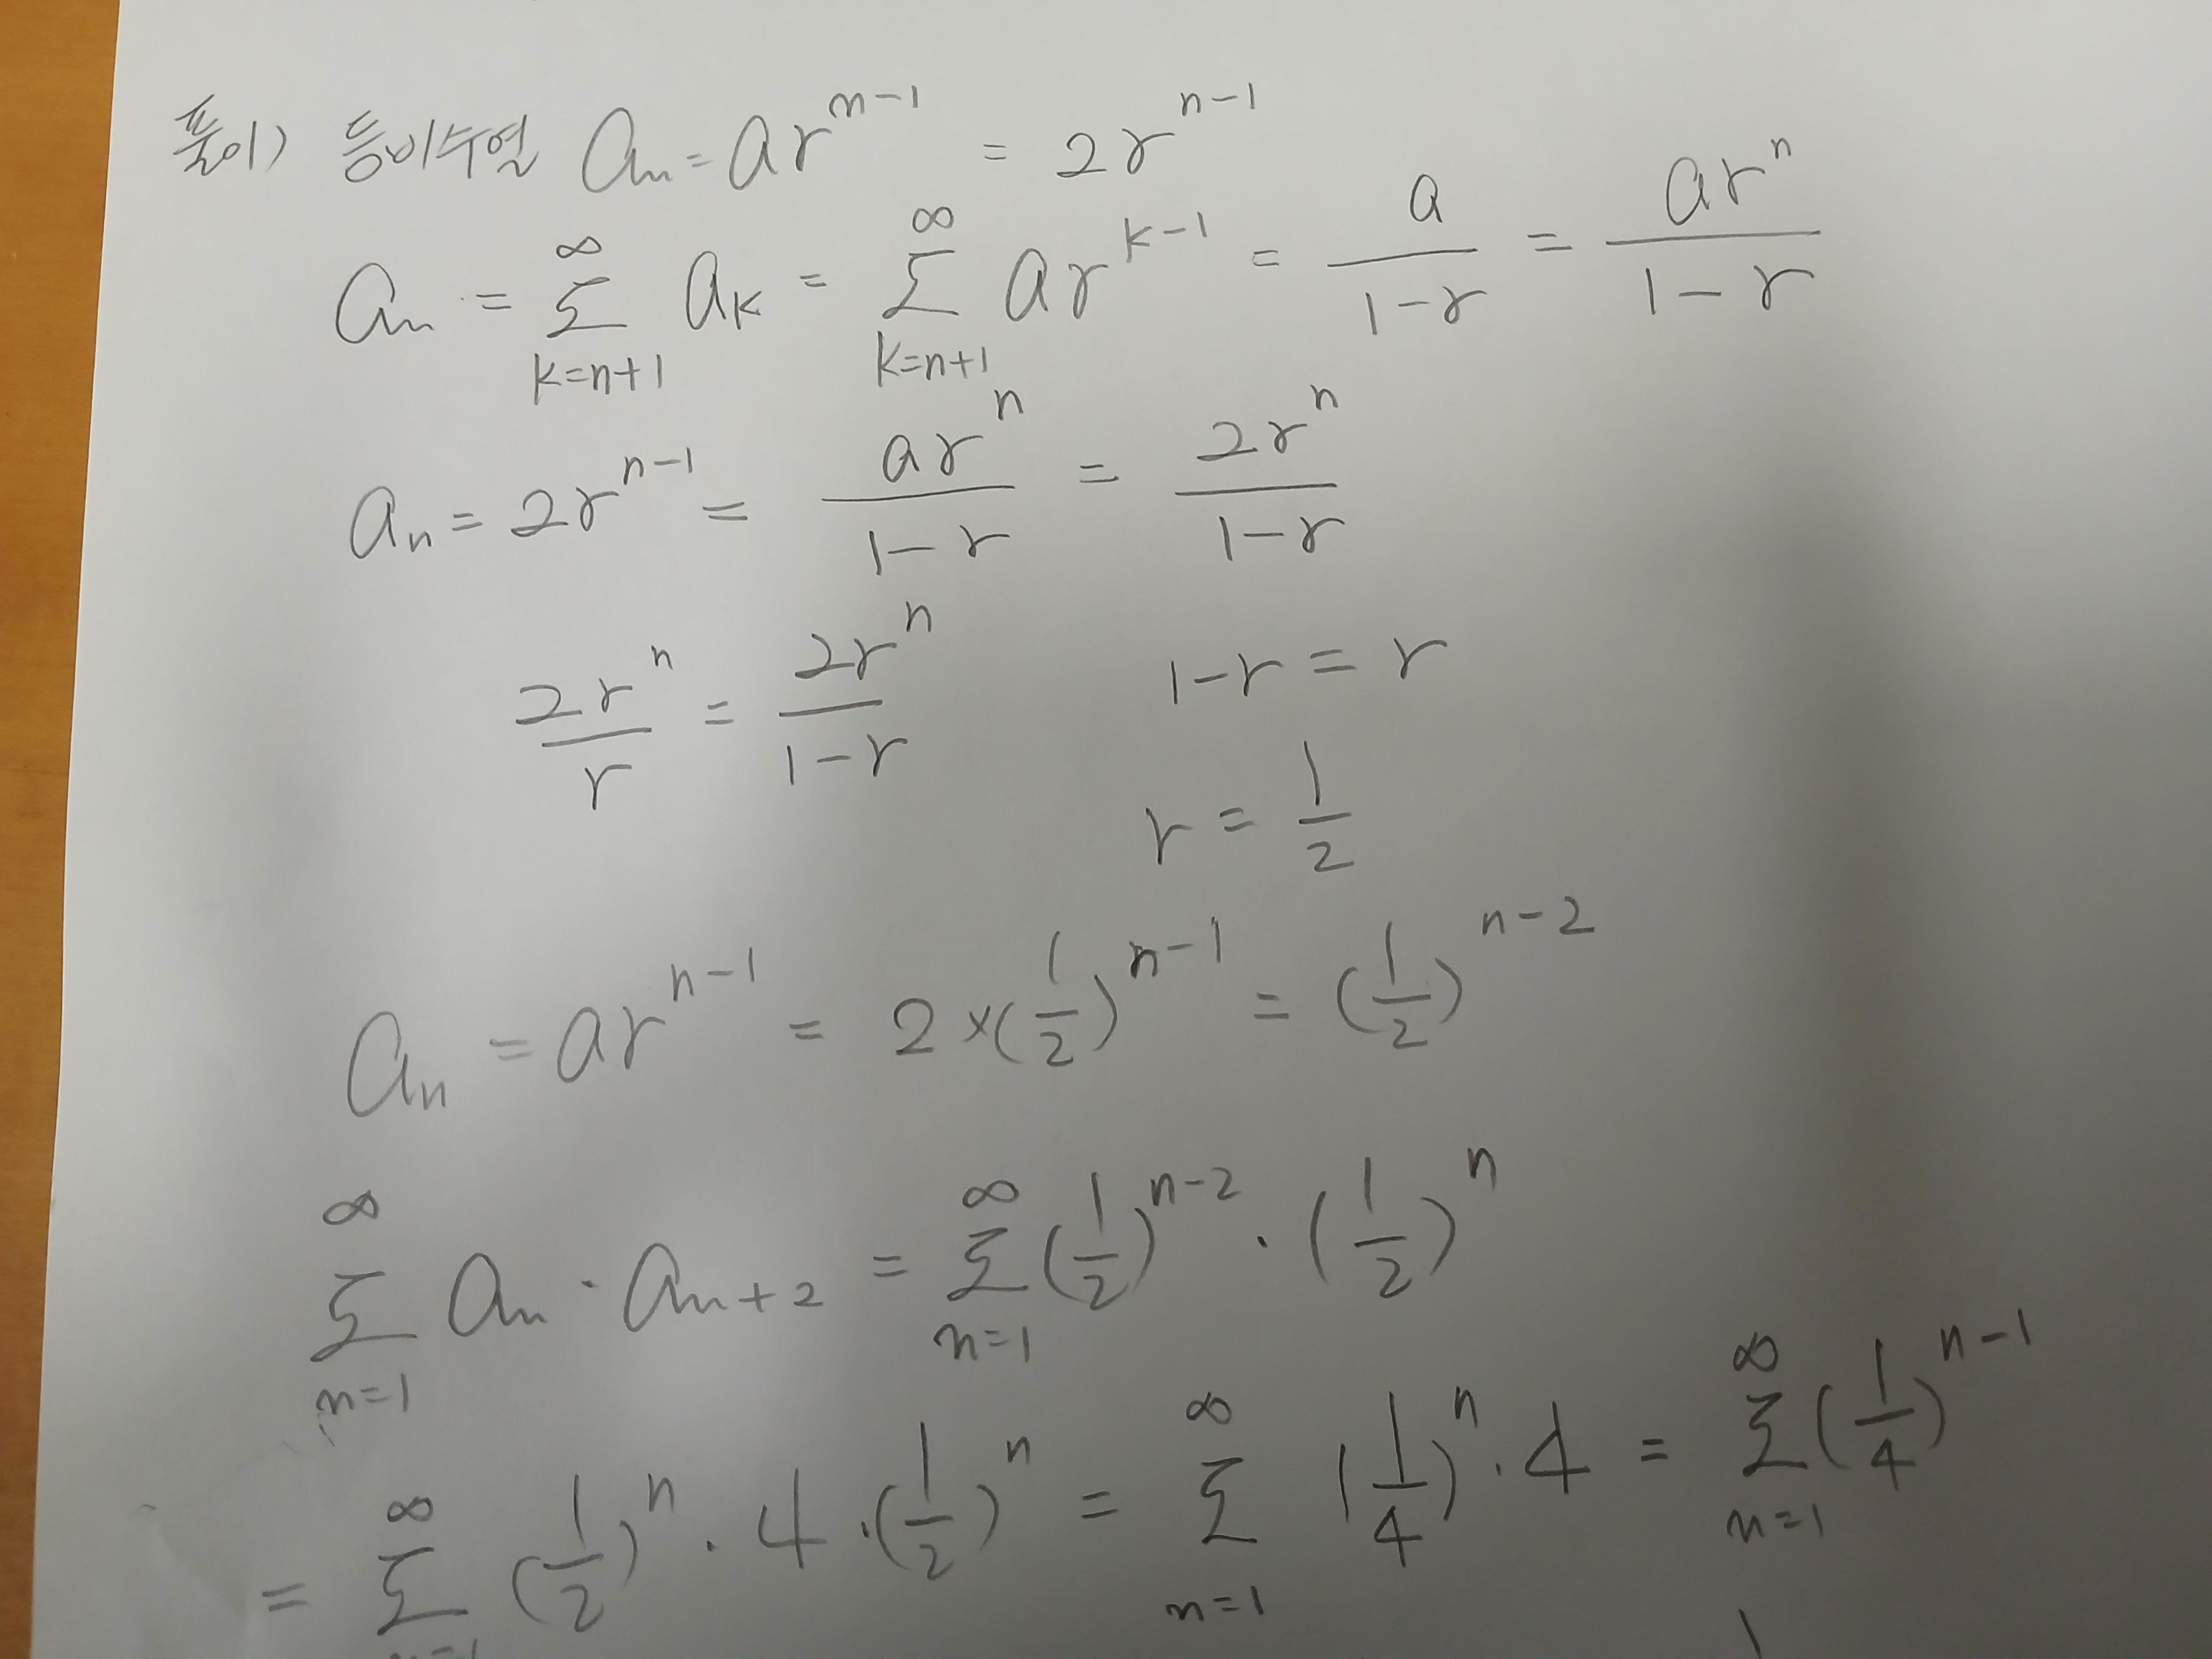 풀이) 등비수열 aₙ = ar^(n-1) = 2r^(n-1)
aₙ = ∑_(k=n+1)^∞ a_k = ∑_(k=n+1)^∞ ar^(k-1) = a/(1-r) = ar^n/(1-r)
aₙ = 2r^(n-1) = ar^n/(1-r) = 2r^n/(1-r)
2r^n/r = 2r^n/(1-r) 1-r = r
r = 1/2
aₙ = ar^(n-1) = 2×(1/2)^(n-1) = (1/2)^(n-2)
∑_(n=1)^∞ aₙ · a_(n+2) = ∑_(n=1)^∞ (1/2)^(n-2) · (1/2)^n
= ∑_(n=1)^∞ (1/2)^n · 4 · (1/2)^n = ∑_(n=1)^∞ (1/4)^n · 4 = ∑_(n=1)^∞ (1/4)^(n-1)